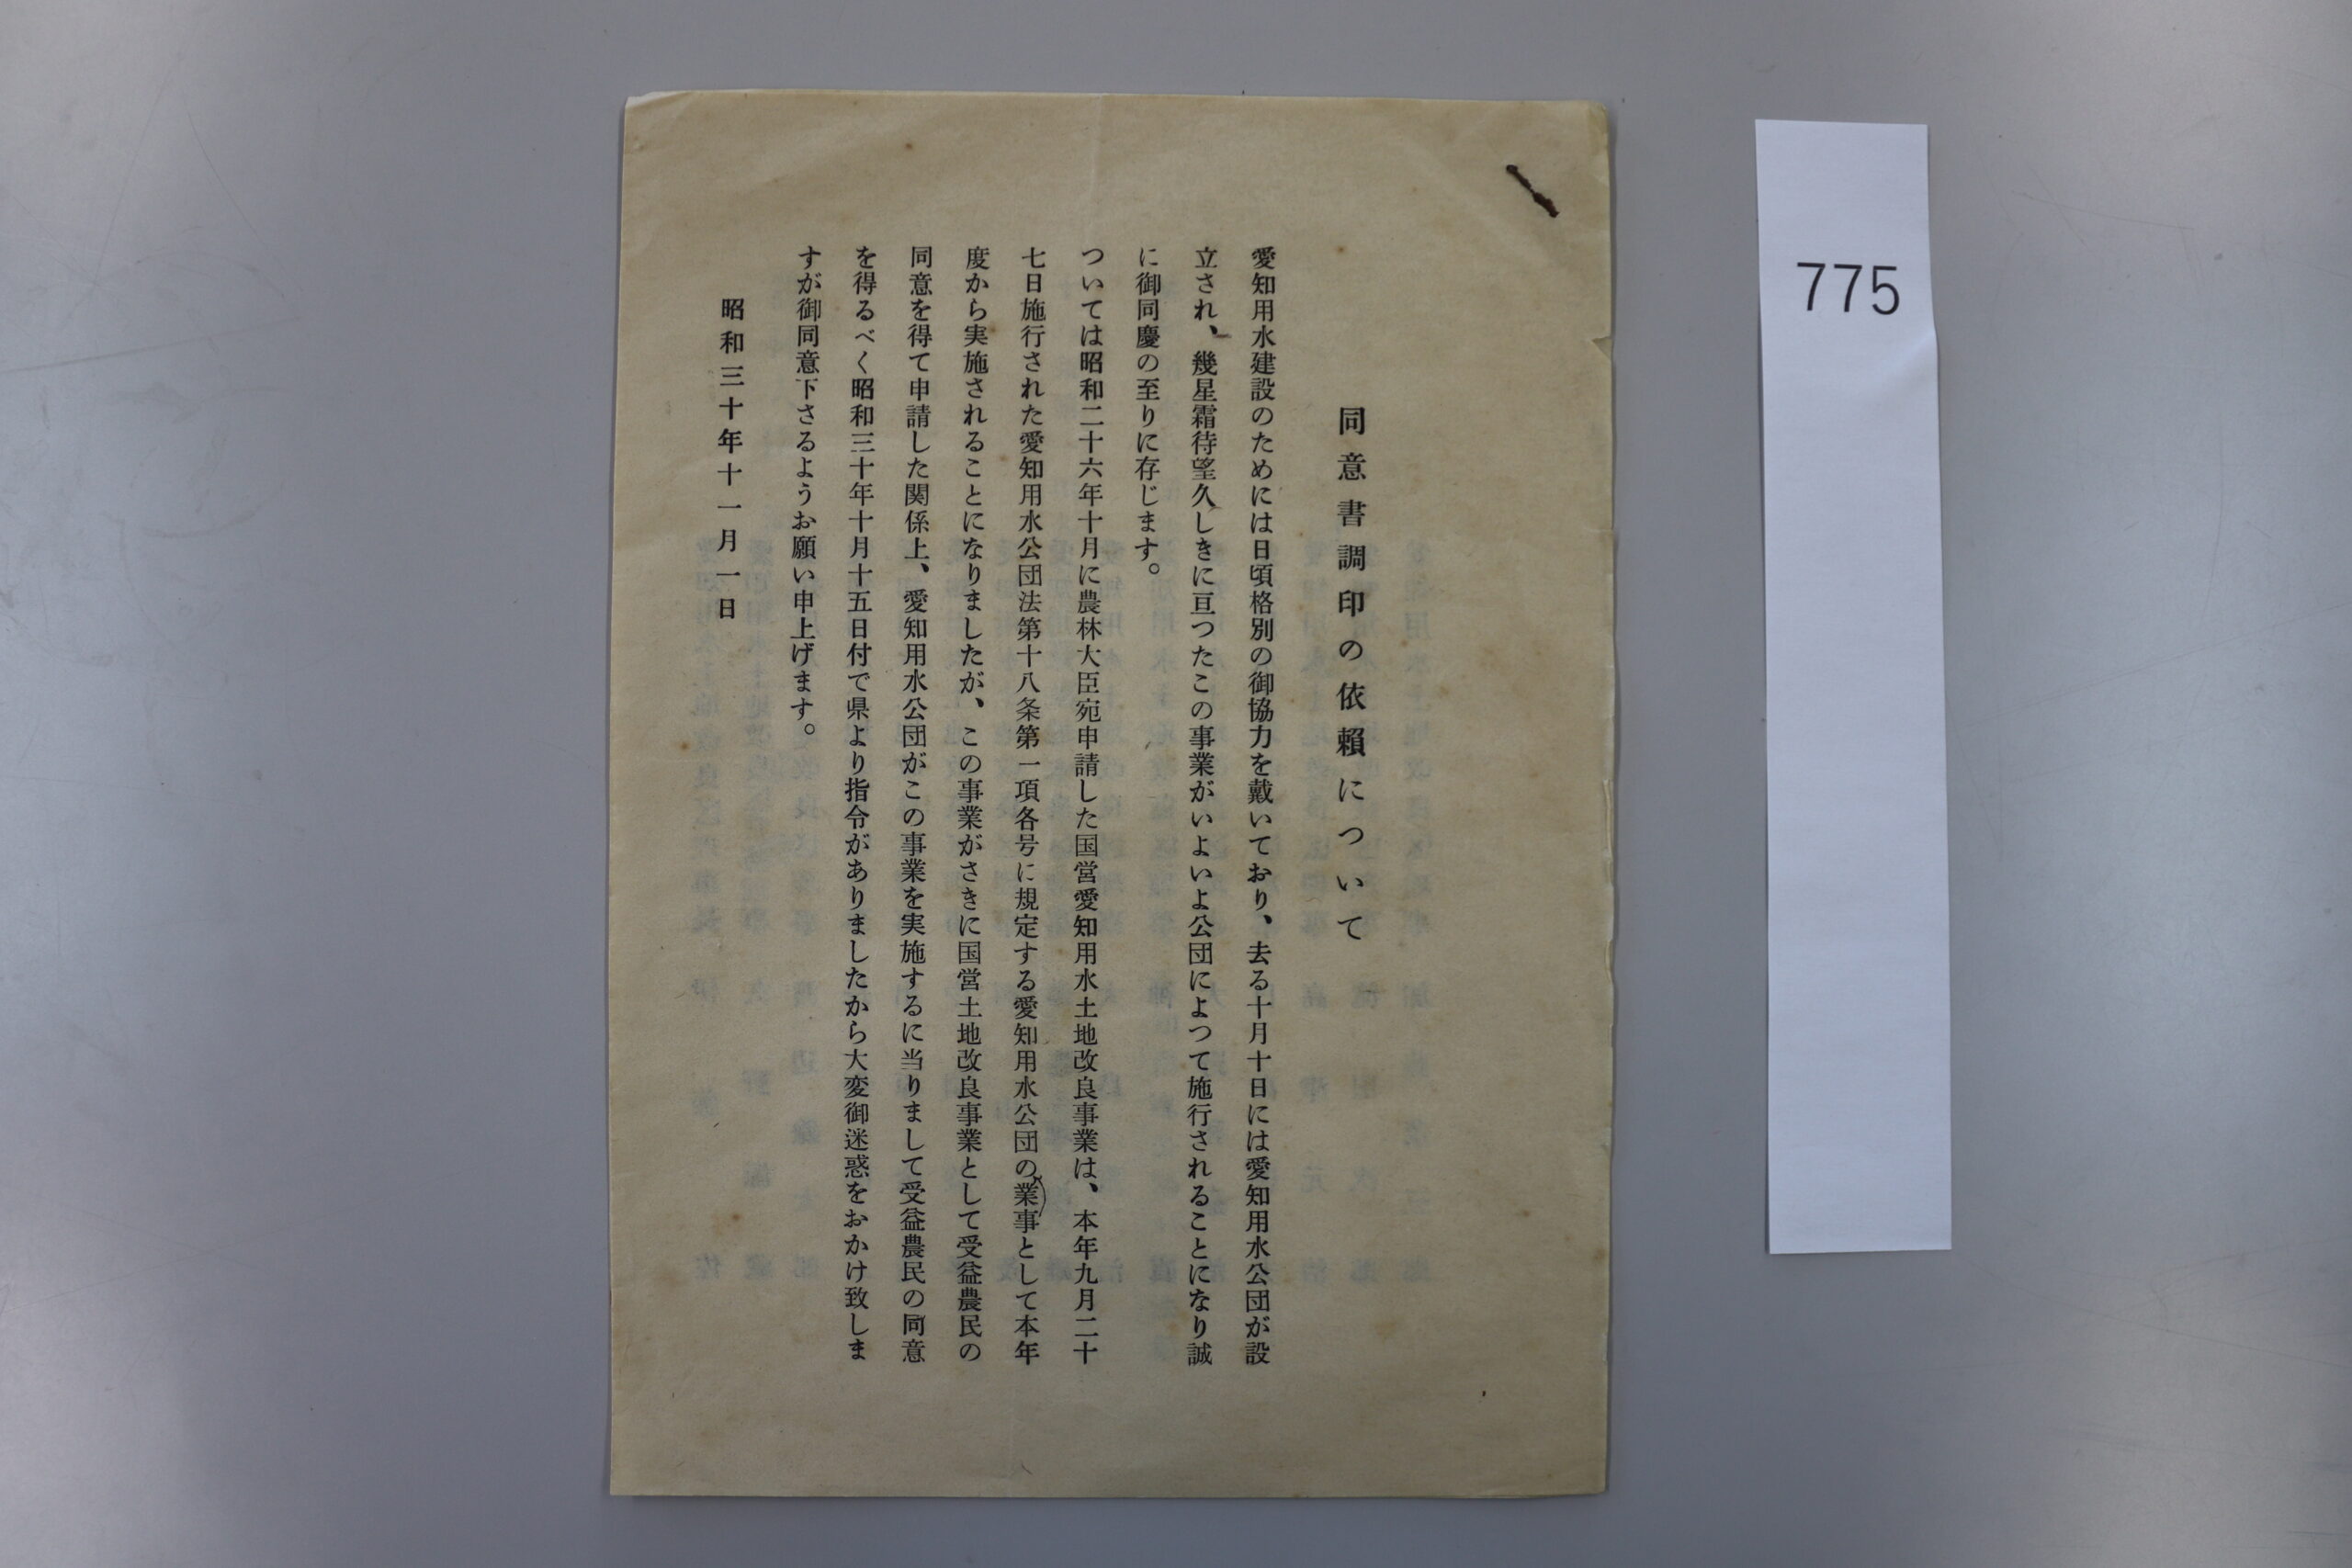 同意書調印の依頼について
愛知用水建設のためには日頃格別の御協力を戴いており、去る十月十日には愛知用水公団が設
立され、幾星霜待望久しきに亘つたこの事業がいよいよ公団によつて施行されることになり誠
に御同慶の至りに存じます。
ついては昭和二十六年十月に農林大臣宛申請した国営愛知用水土地改良事業は、本年九月二十
七日施行された愛知用水公団法第十八条第一項各号に規定する愛知用水公団の業事として本年
度から実施されることになりましたが、この事業がさきに国営土地改良事業として受益農民の
同意を得て申請した関係上、愛知用水公団がこの事業を実施するに当りまして受益農民の同意
を得るべく昭和三十年十月十五日付で県より指令がありましたから大変御迷惑をおかけ致しま
すが御同意下さるようお願い申上げます。
昭和三十年十一月一日
775